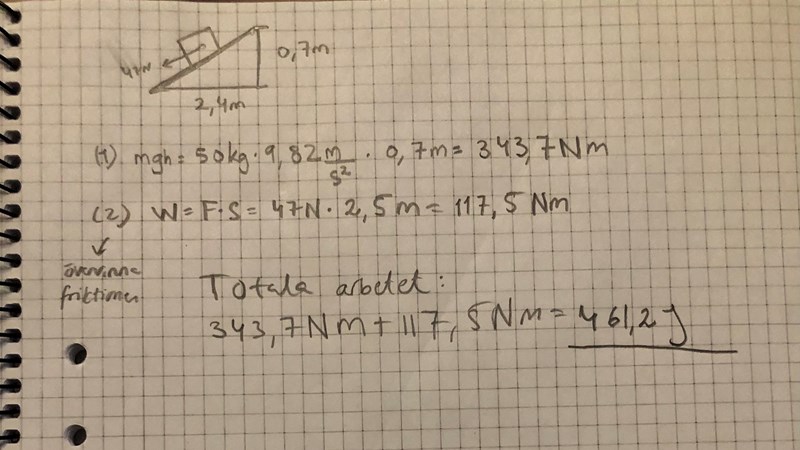 47N
0,7m
2,4m
(1) mgh = 50kg · 9,82 m/s² · 0,7m = 343,7Nm
(2) W = F·S = 47N · 2,5m = 117,5 Nm
övervinna
friktionen
Totala arbetet:
343,7Nm + 117,5Nm = 461,2J